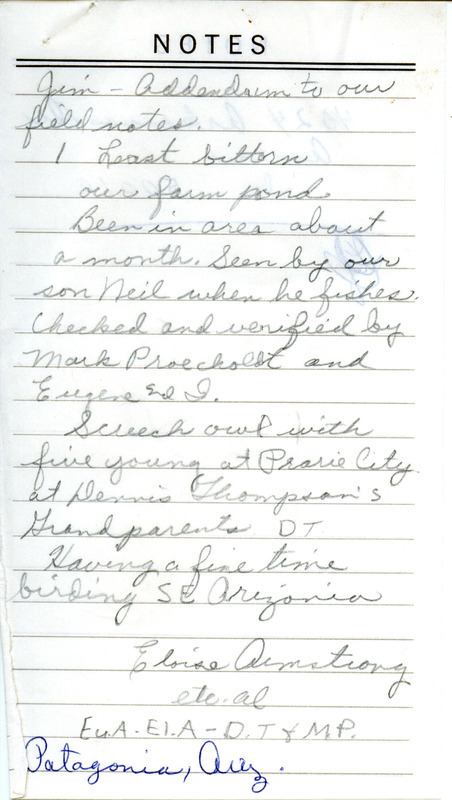 NOTES
Jim - Addendum to our
field notes.
1 Least bittern
our farm pond
Been in area about
a month. Seen by our
son Neil when he fishes.
Checked and verified by
Mark Proecholdt and
Eugene and I.
Screech owl with
five young at Prarie City
at Dennis Thompson's
Grandparents DT
Having a fine time
birding SE Arizonia
Eloise Armstrong
etc. al
Eu.A. - El.A - D.T & M.P.
Patagonia, Ariz.